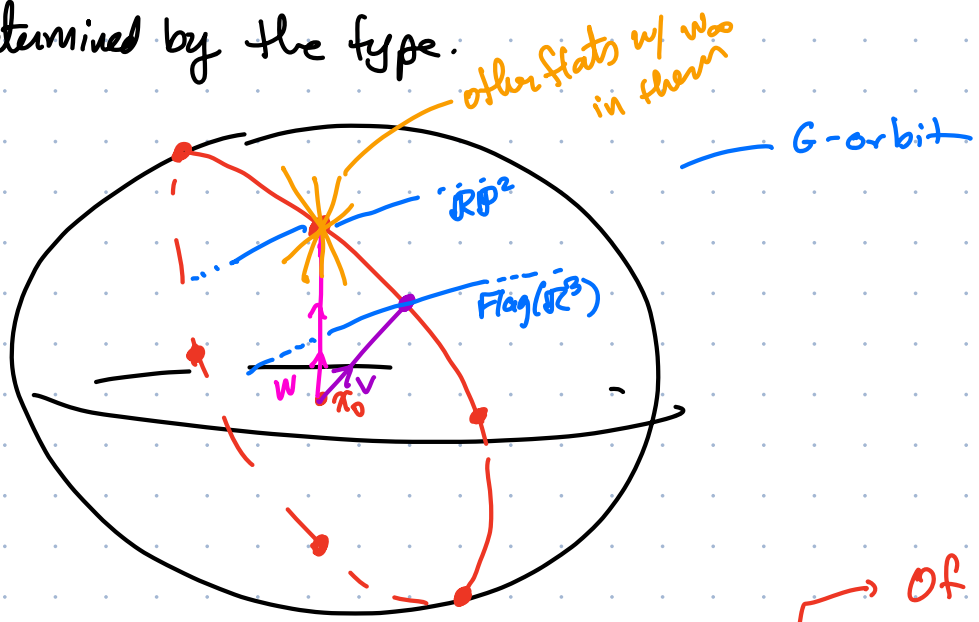 termined by the type.
other flats w/ w∞
in them
G-orbit
RP²
Flag(R³)
W
V
x₀
Of